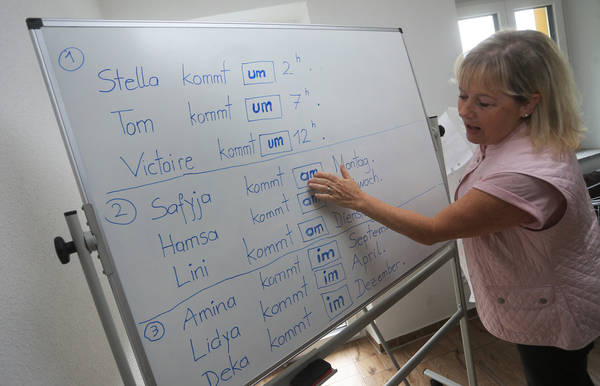 1
Stella kommt um 2 h.
Tom kommt um 7 h.
Victoire kommt um 12 h.
2 Safyja kommt am Montag.
Hamsa kommt am
Lini kommt am
3 Amina kommt im September.
Lidya kommt im April.
Deka kommt im Dezember.